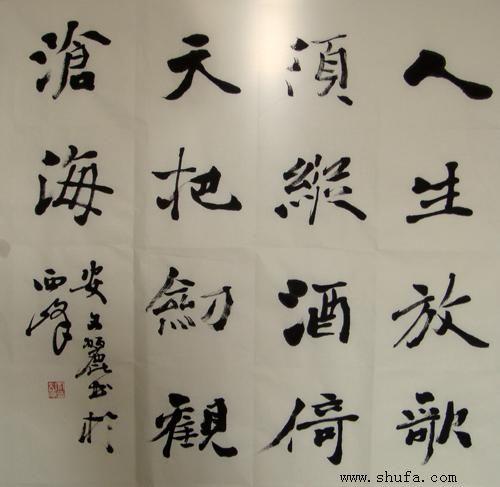 人生放歌
須縱酒倚
天把劍觀
滄海
安文麗書於
西峰
www.shufa.com